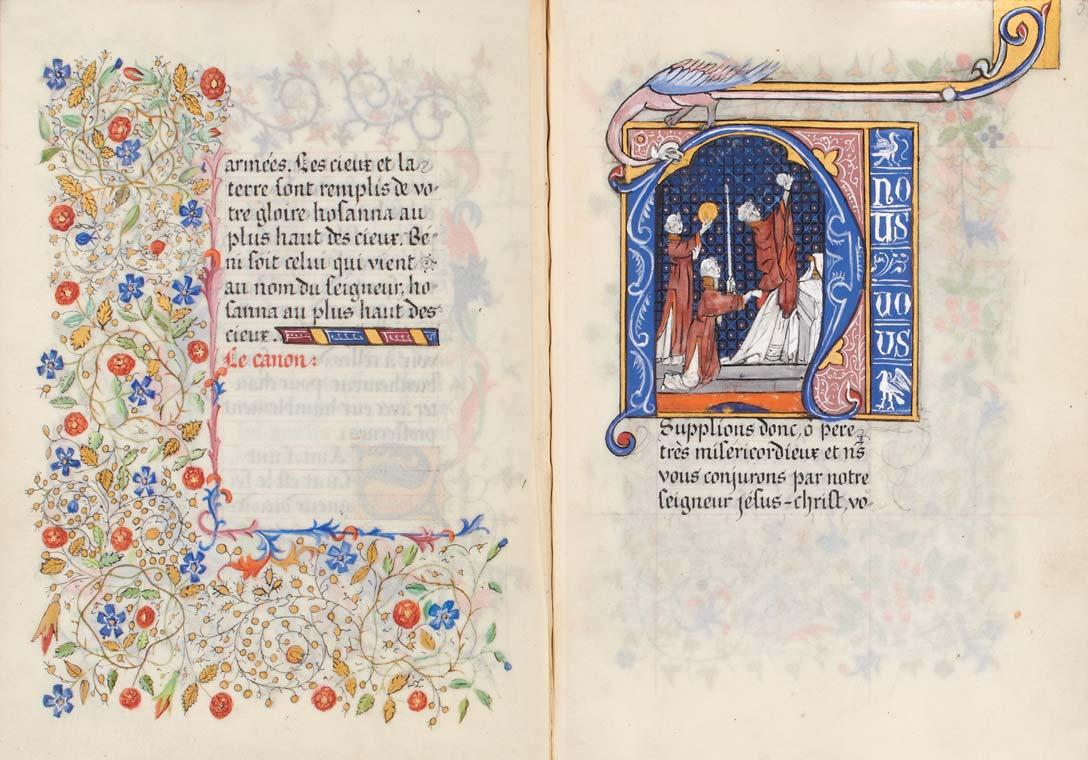 armées. Les cieux et la
terre sont remplis de vo-
tre gloire hosanna au
plus haut des cieux. Bé-
ni soit celui qui vient
au nom du seigneur, ho-
sanna au plus haut des
cieux.
Le canon:
N
no
us
vo
us
Supplions donc, ô père
très miséricordieux et ns
vous conjurons par notre
seigneur jésus-christ, vo-